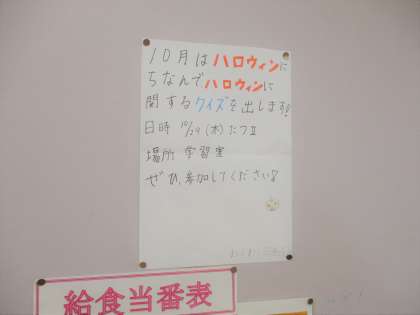 10月はハロウィンに
ちなんでハロウィンに
関するクイズを出します!
日時 10/29(木)たつII
場所 学習室
ぜひ、参加してください!
給食当番表